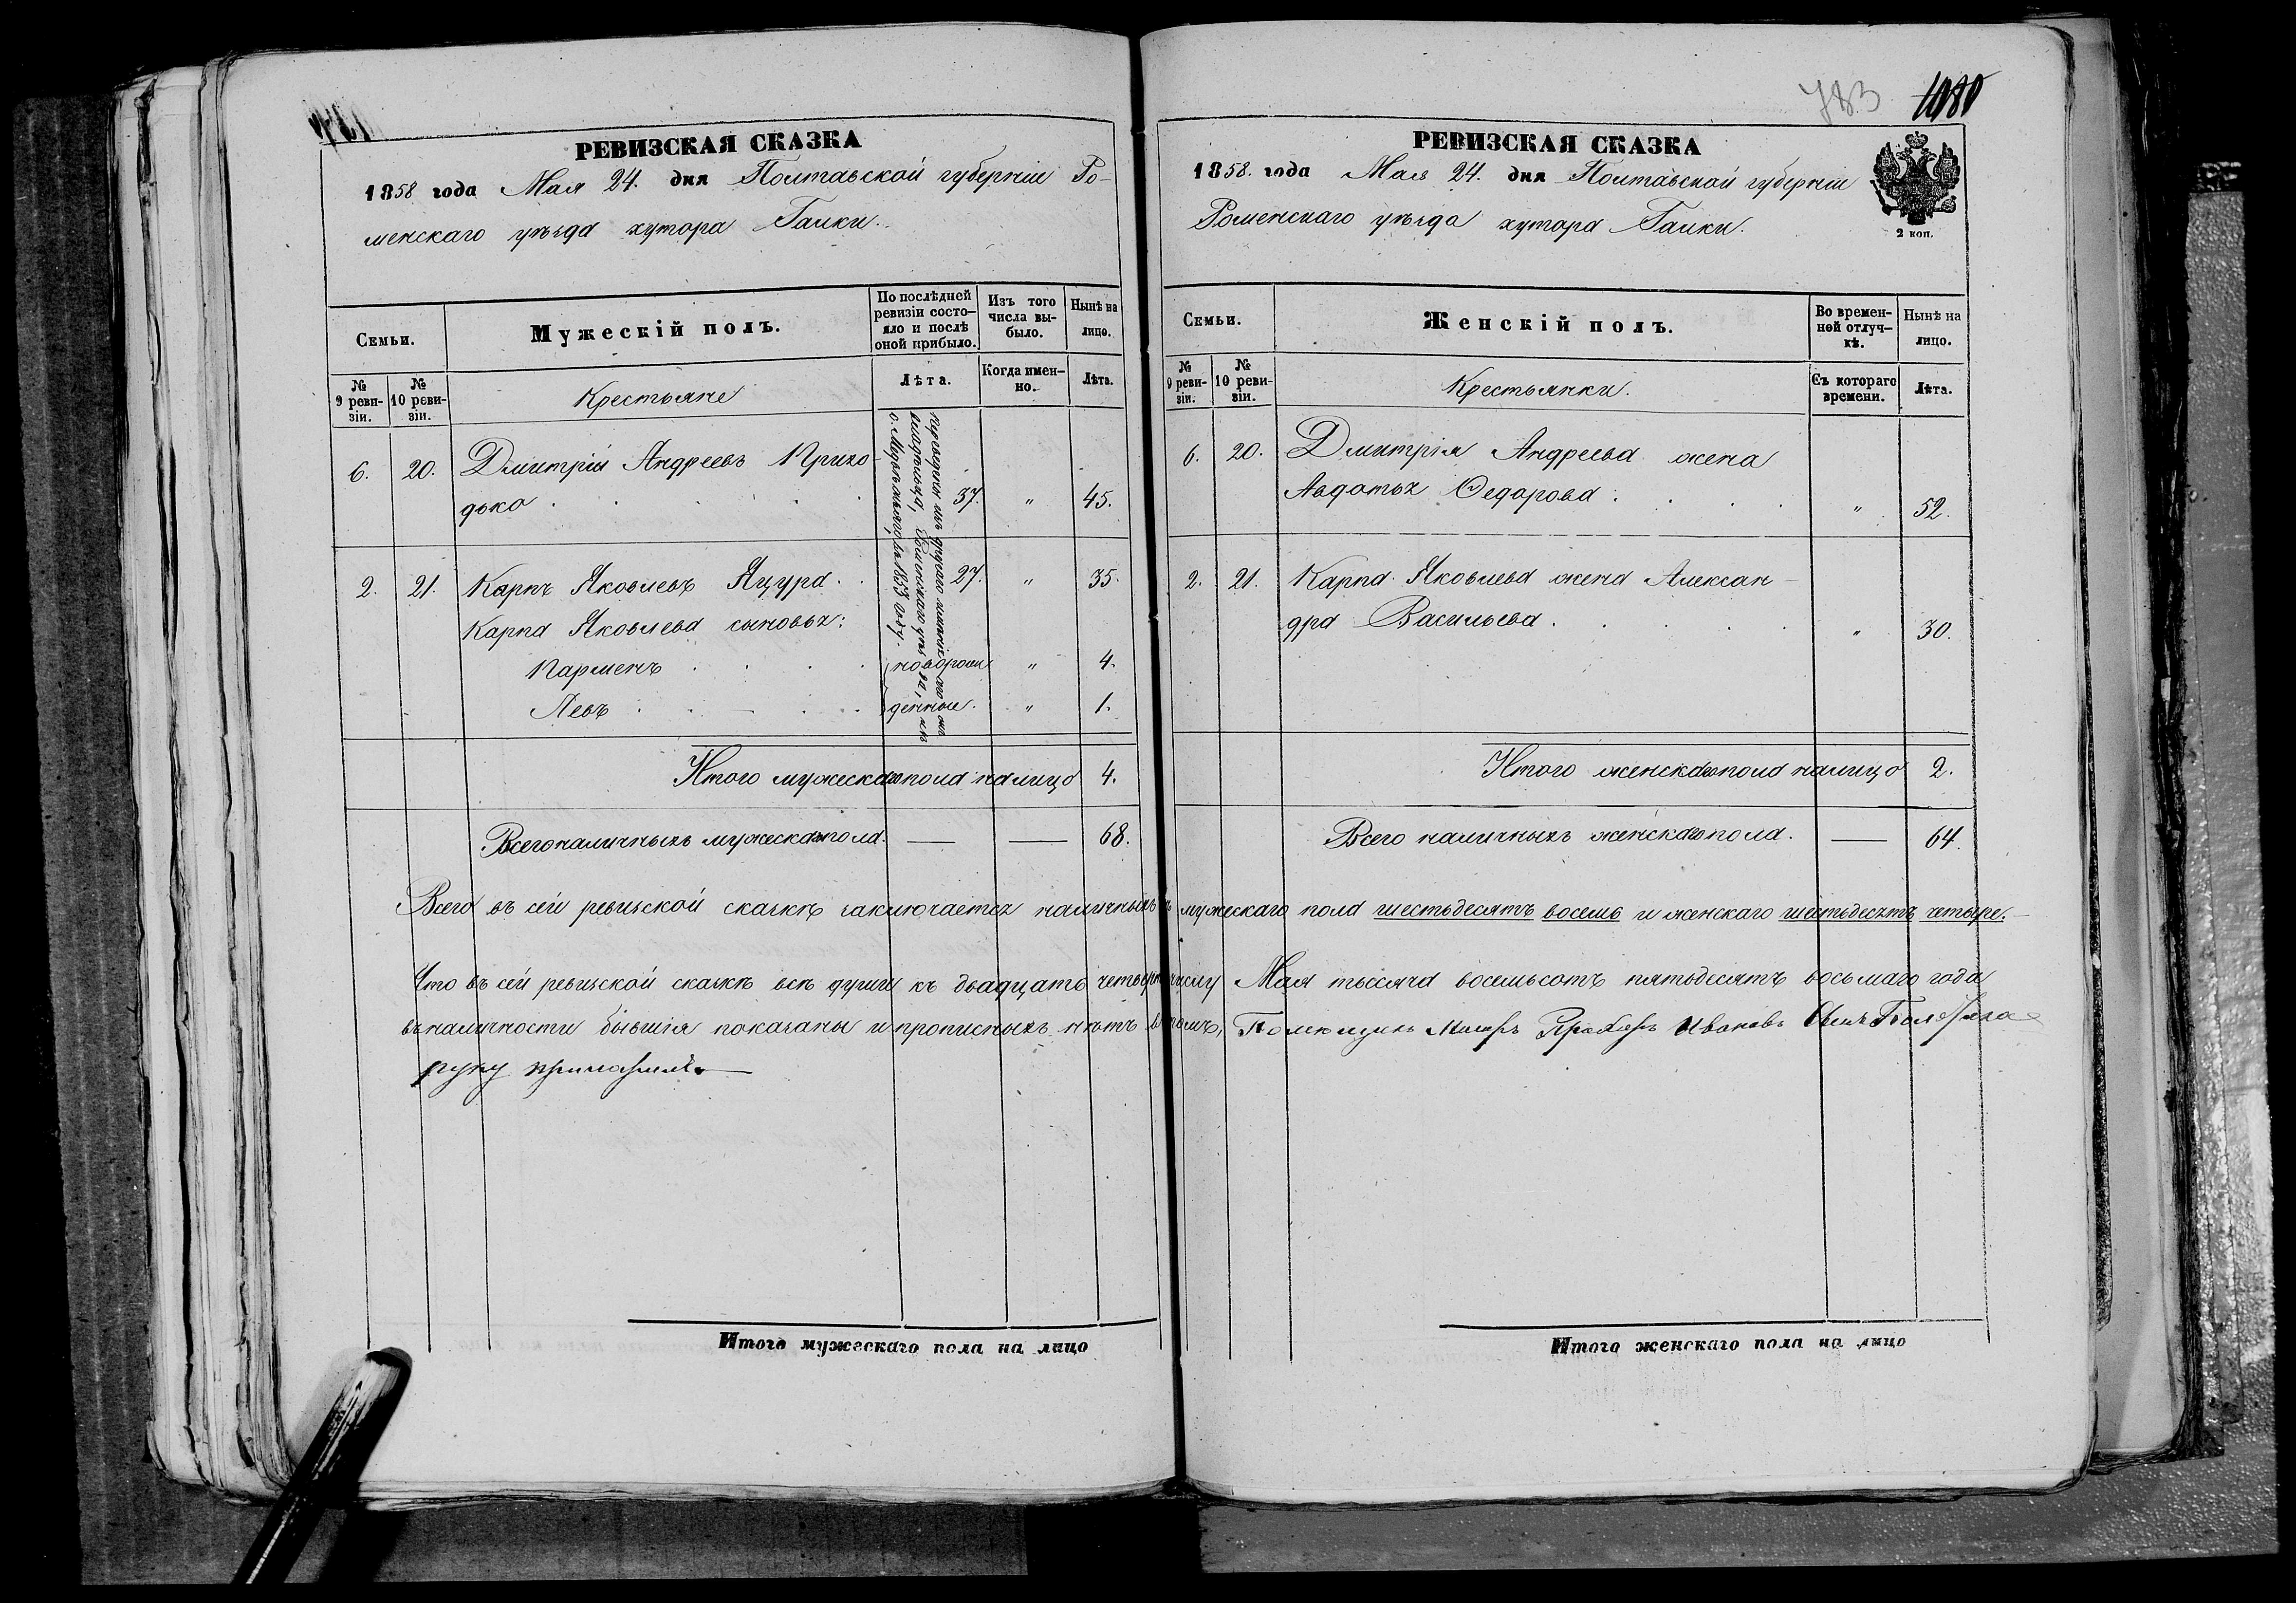 РЕВИЗСКАЯ СКАЗКА
1858 года Мая 24. дня Полтавской губерніи Ро-
менскаго уѣзда хутора Галки.
Семьи.
Мужескій полъ.
По послѣдней
ревизіи состо-
яло и послѣ
оной прибыло.
Изъ того
числа вы-
было.
Нынѣ на
лицо.
№
9 реви-
зіи.
№
10 реви-
зіи.
Крестьяне
Лѣта.
Когда имен-
но.
Лѣта.
переведены изъ другаго имѣнія
владѣльца, Роменскаго уѣзда, изъ
въ 1853 году.
6. 20. Дмитрій Андреевъ Прихо-
дько . . . . 37. " 45.
2. 21. Карпъ Яковлевъ Яцура . . 27. " 35.
Карпа Яковлева сыновья:
Парменъ . . . . новорож " 4.
Левъ . . . . . денные. " 1.
Итого мужескаго пола на лицо 4.
Всего наличныхъ мужескаго пола. — — 68.
783 1080
РЕВИЗСКАЯ СКАЗКА
1858. года Мая 24. дня Полтавской губерніи
Роменскаго уѣзда хутора Галки.
2 коп.
Семьи.
Женскій полъ.
Во времен-
ной отлуч-
кѣ.
Нынѣ на
лицо.
№
9 реви-
зіи.
№
10 реви-
зіи.
Крестьянки.
Съ котораго
времени.
Лѣта.
6. 20. Дмитрія Андреева жена
Авдотья Федорова . . . . " 52.
2. 21. Карпа Яковлева жена Алексан-
дра Васильева . . . . " 30.
Итого женскаго пола на лицо 2.
Всего наличныхъ женскаго пола. — 64.
Всего въ сей ревизской сказкѣ заключается наличныхъ мужескаго пола шестьдесятъ восемь и женскаго шестьдесятъ четыре.—
Что въ сей ревизской сказкѣ всѣ души къ двадцать четвер числу Мая тысяча восемьсотъ пятьдесятъ восьмаго года
въ наличности бывшія показаны и прописныхъ нѣтъ въ томъ, Помѣщикъ Ивановъ Сынъ
руку приложилъ
Итого мужескаго пола на лицо
Итого женскаго пола на лицо